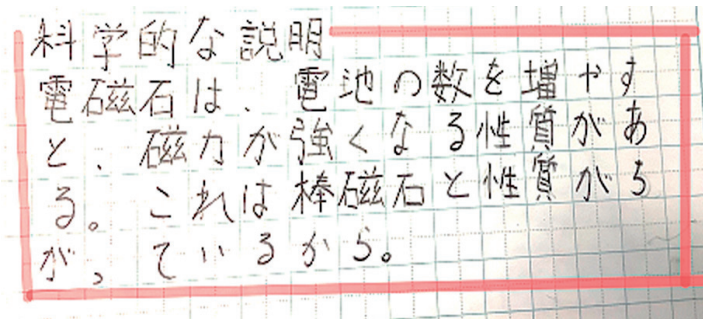 科学的な説明
電磁石は、電池の数を増やす
と、磁力が強くなる性質があ
る。これは棒磁石と性質がち
がっているから。